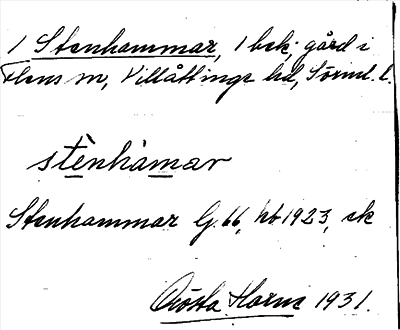 1 Stenhammar, 1 bek; gård i
Flens sn, Villåttinge hd, Sörml. l.
stènhàmar
Stenhammar G. 66, hb 1923, ek
Gösta Horns 1931.